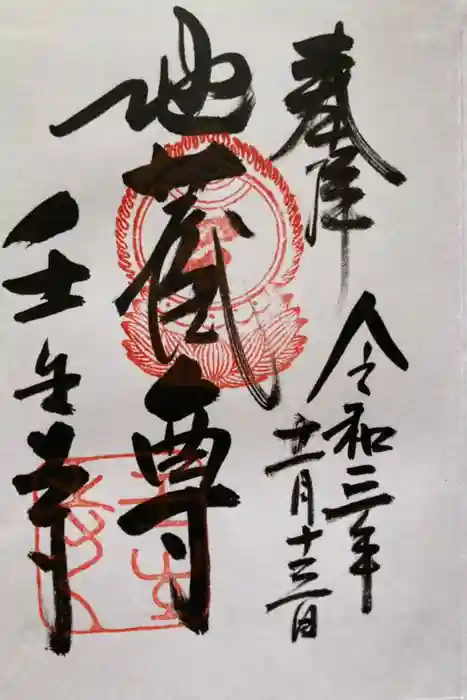 奉拝
令和三年
十一月十三日
地蔵尊
壬生寺